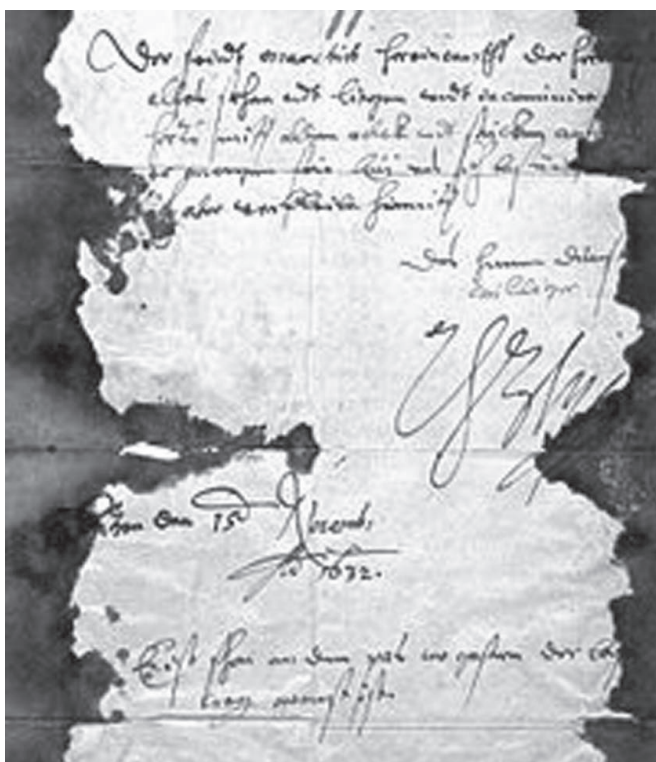 Der feindt marchirt hereinwarths der herr
alles stehen undt liegen undt incaminire
herzu mitt allem volck undt stücken auf
er morgen frue bei uns sich
aber verbleibe hiemitt
Des herren
williger
den 15 Novemb:
Ao 1632.
Er ist schon an dem pas wo gestern der
weeg gewest ist.